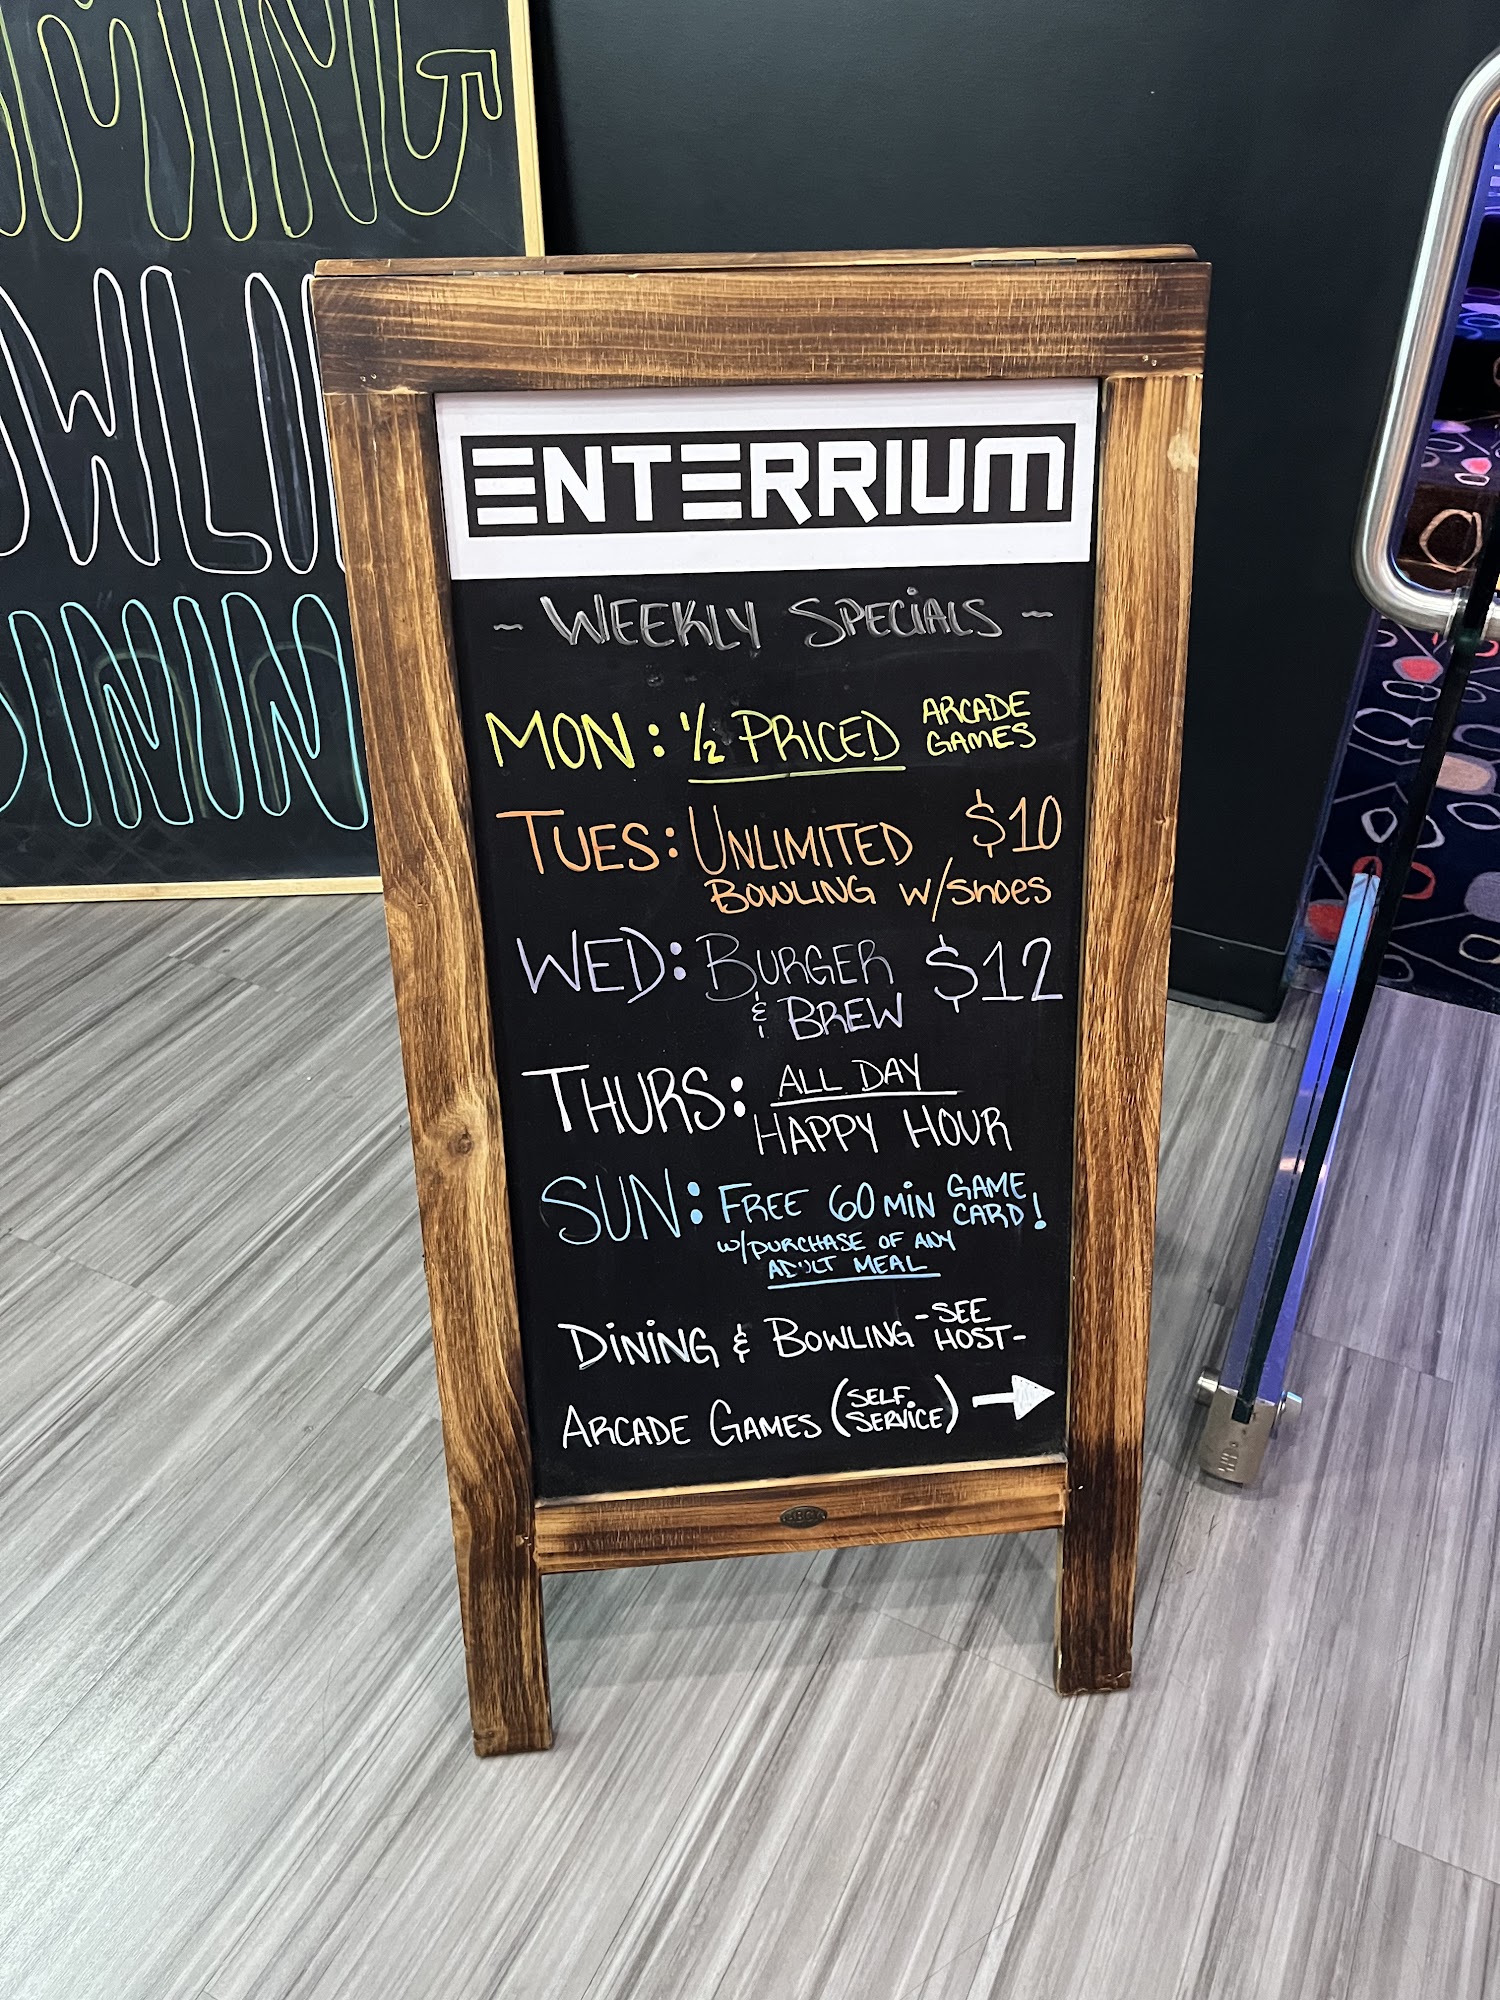 ENTERRIUM
~ WEEKLY SPECIALS ~
MON: 1/2 PRICED ARCADE GAMES
TUES: UNLIMITED $10
BOWLING W/SHOES
WED: BURGER $12
& BREW
THURS: ALL DAY
HAPPY HOUR
SUN: FREE 60 MIN GAME CARD!
W/PURCHASE OF ANY
ADULT MEAL
DINING & BOWLING -SEE HOST-
ARCADE GAMES (SELF SERVICE) →